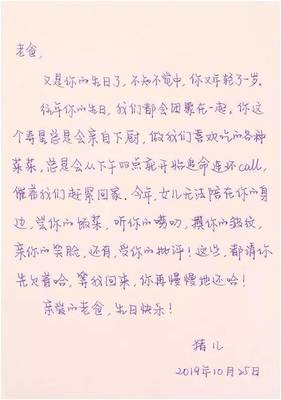 老爸,
又是你的生日了,不知不觉中,你又年轻了一岁。
往年你的生日,我们都会团聚在一起。你这
个寿星总是会亲自下厨,做我们喜欢吃的各种
菜菜,总是会从下午四点就开始追命连环call,
催着我们赶紧回家。今年,女儿无法陪在你的身
边,尝你的饭菜,听你的唠叨,摸你的皱纹,
亲你的笑脸,还有,受你的批评!这些,都请你
先欠着哈,等我回来,你再慢慢地还哈!
亲爱的老爸,生日快乐!
猪儿
2019年10月25日